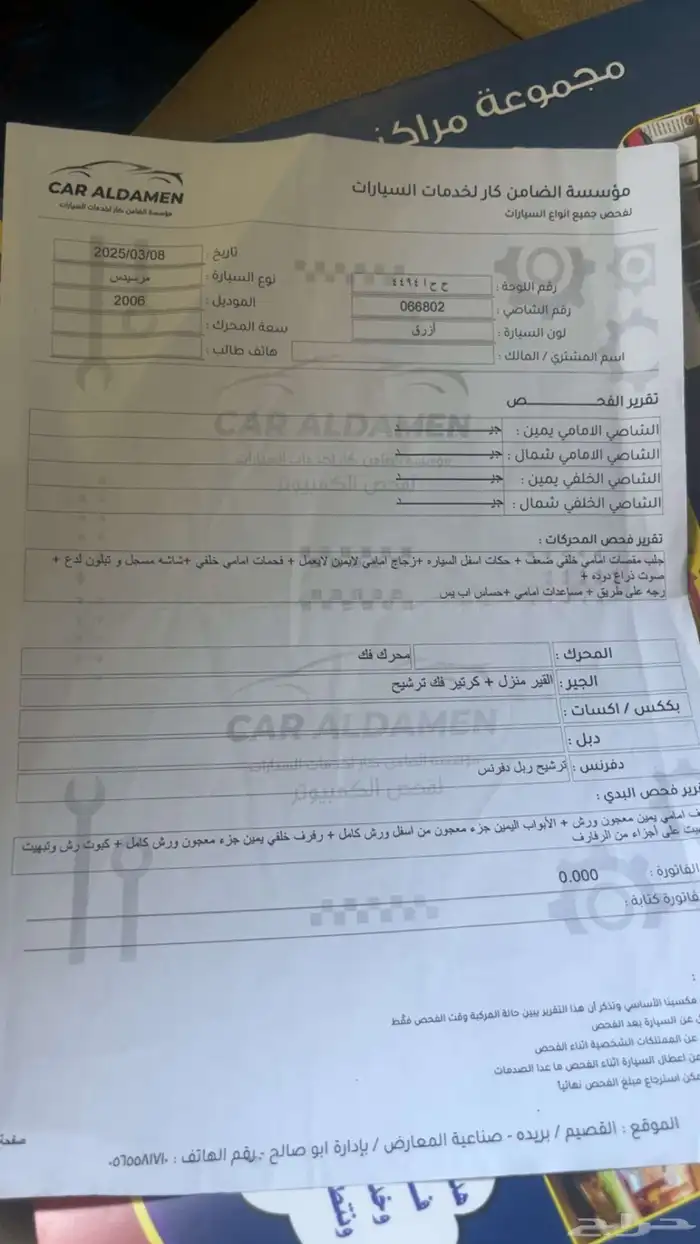 مجموعة مراكز
CAR ALDAMEN
مؤسسة الضامن كار لخدمات السيارات
مؤسسة الضامن كار لخدمات السيارات
لفحص جميع انواع السيارات
تاريخ : 2025/03/08
نوع السيارة : مرسيدس
رقم اللوحة : ح ح ا ٤٤٩٤
الموديل : 2006
رقم الشاصي : 066802
سعة المحرك :
لون السيارة : أزرق
هاتف طالب :
اسم المشتري / المالك :
تقرير الفحــــــــص
الشاصي الامامي يمين : جيــــــــد
الشاصي الامامي شمال : جيــــــــد
الشاصي الخلفي يمين : جيــــــــد
الشاصي الخلفي شمال : جيــــــــد
CAR ALDAMEN
مؤسسة الضامن كار لخدمات السيارات
لفحص الكمبيوتر
تقرير فحص المحركات :
جلب مقصات امامي خلفي ضعف + حكات اسفل السياره +زجاج امامي لايمين لايعمل + فحمات امامي خلفي +شاشه مسجل و تبلون لدع +
صوت ذراع دوده +
رجه على طريق + مساعدات امامي +حساس اب يس
المحرك : محرك فك
الجير : القير منزل + كرتير فك ترشيح
بككس / اكسات :
دبل :
دفرنس : ترشيح ربل دفرنس
CAR ALDAMEN
مؤسسة الضامن كار لخدمات السيارات
لفحص الكمبيوتر
رير فحص البدي :
ف امامي يمين معجون ورش + الأبواب اليمين جزء معجون من اسفل ورش كامل + رفرف خلفي يمين جزء معجون ورش كامل + كبوت رش وتبهيت
يت على أجزاء من الرفارف
الفاتورة : 0.000
فاتورة كتابة :
:
مكسبنا الأساسي ونذكر أن هذا التقرير يبين حالة المركبة وقت الفحص فقط
ن عن السيارة بعد الفحص
عن الممتلكات الشخصية اثناء الفحص
ن اعطال السيارة اثناء الفحص ما عدا الصدمات
مكن استرجاع مبلغ الفحص نهائياً
الموقع : القصيم / بريده - صناعية المعارض / بإدارة ابو صالح - رقم الهاتف : ٠٥٦٥٥٨١٧١٠
صفحة
حراج